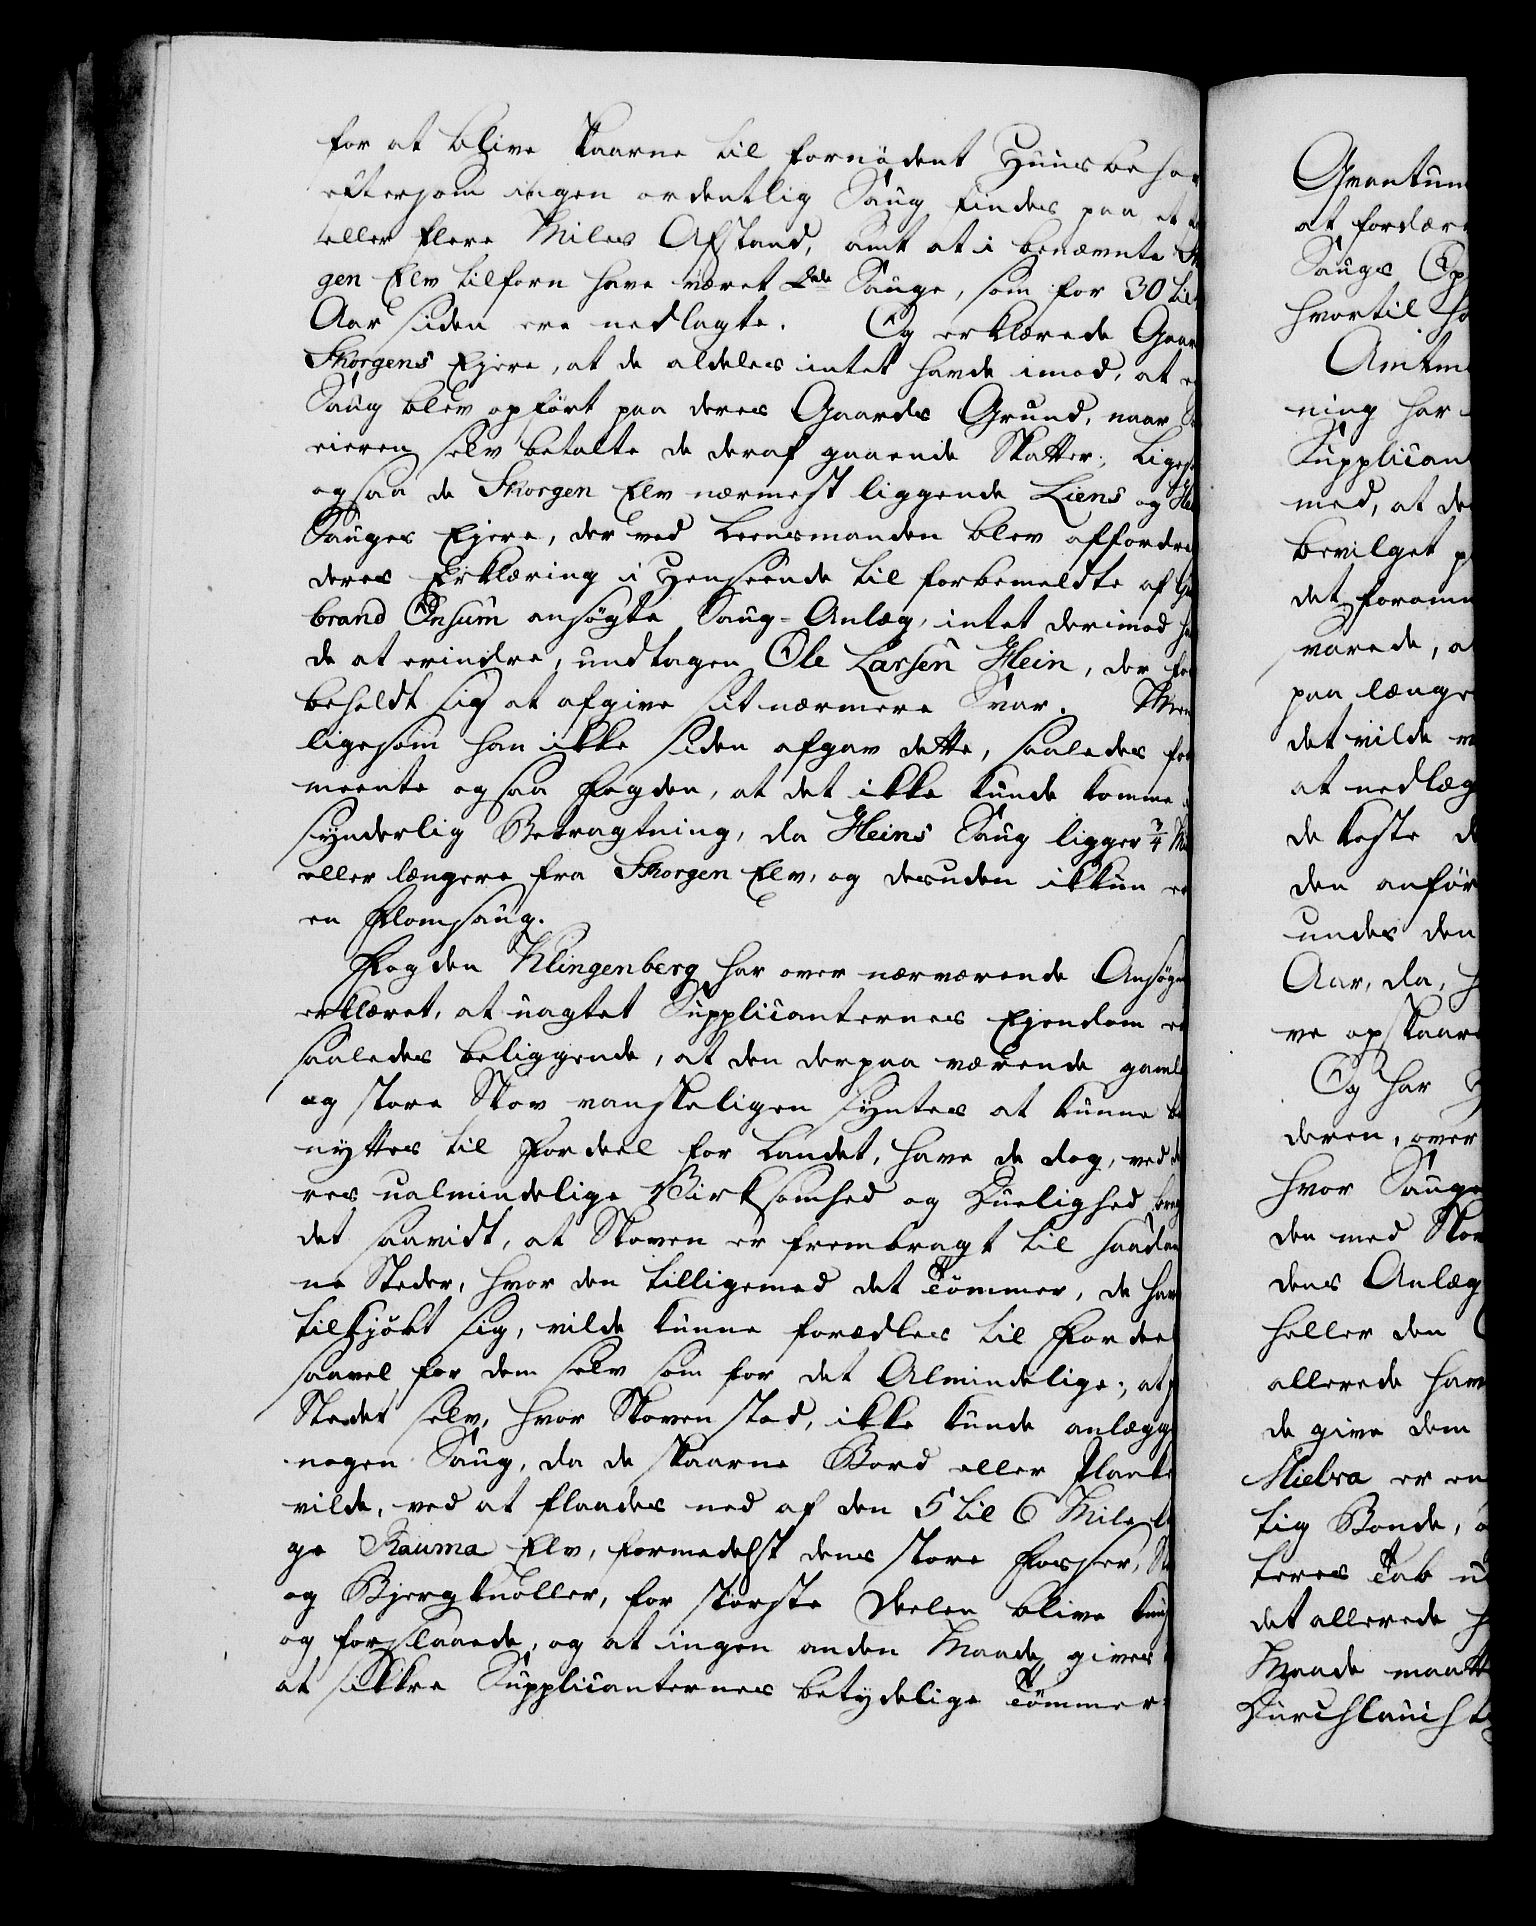 for at blive skaarne til fornödent Huusbeho
eftersom ingen ordentlig Saug findes paa et
eller flere Miles Afstand, samt at i benævnte Sk
gen Elv tilforn have været 2de Sauge, som for 30 til
Aar siden ere nedlagte. Og erklærede Gaar
Skorgens Ejere, at de aldeles intet havde imod, at e
Saug blev opfört paa deres Gaards Grund, naar
eieren selv betalte de deraf gaaende Skatter; Liges
ogsaa de Skorgen Elv nærmest liggende Liens og Hei
Sauges Ejere, der ved Leensmanden blev affordre
deres Erklæring i Henseende til forbemeldte af Gu
brand Onsum ansögte Saug-Anlæg, intet derimod ha
de at erindre, undtagen Ole Larsen Hein, der fo
beholdt sig at afgive sit nærmere Svar. Men
ligesom han ikke siden afgav dette, saaledes for
meente ogsaa Fogden, at det ikke kunde komme i
synderlig Betragtning, da Heins Saug ligger 3/4 Mi
eller længere fra Skorgen Elv, og desuden ikkun er
en Flomsaug.
Fogden Klingenberg har over nærværende Ansögn
erklæret, at uagtet Supplicanternes Ejendom er
saaledes beliggende, at den derpaa værende gaml
og store Skov vanskeligen syntes at kunne be
nyttes til Fordeel for Landet, have de dog, ved de
res ualmindelige Virksomhed og Duelighed brag
det saavidt, at Skoven er frembragt til saadan
ne Steder, hvor den tilligemed det Tömmer, de hav
tilkjöbt sig, vilde kunne forædles til Fordeel
saavel for dem selv som for det Almindelige; at p
Stedet selv, hvor Skoven stod, ikke kunde anlægge
nogen Saug, da de skaarne Bord eller Planke
vilde, ved at flaades ned af den 5 til 6 Mile la
ge Rauma Elv, formedelst dens store Fosser, St
og Bjergknoller, for störste Deelen blive knus
og forslaaede, og at ingen anden Maade gives
at sikkre Supplicanternes betydelige Tömmer-
Qvantum
at fordær
Saugs Op
hvortil ha
Amtm
ning har
Supplican
med, at de
bevilget p
det foromm
varede, a
paa længe
det vilde v
at nedlæg
de koste d
den anför
undes den
Aar, da, h
ve opskaar
Og har
deren, over
hvor Sauge
den med Skov
dens Anlæg
heller den
allerede hav
de give dem
Mielva er en
tig Bonde, o
teres Tab u
det allerede h
Maade maatte
Durchlauicht